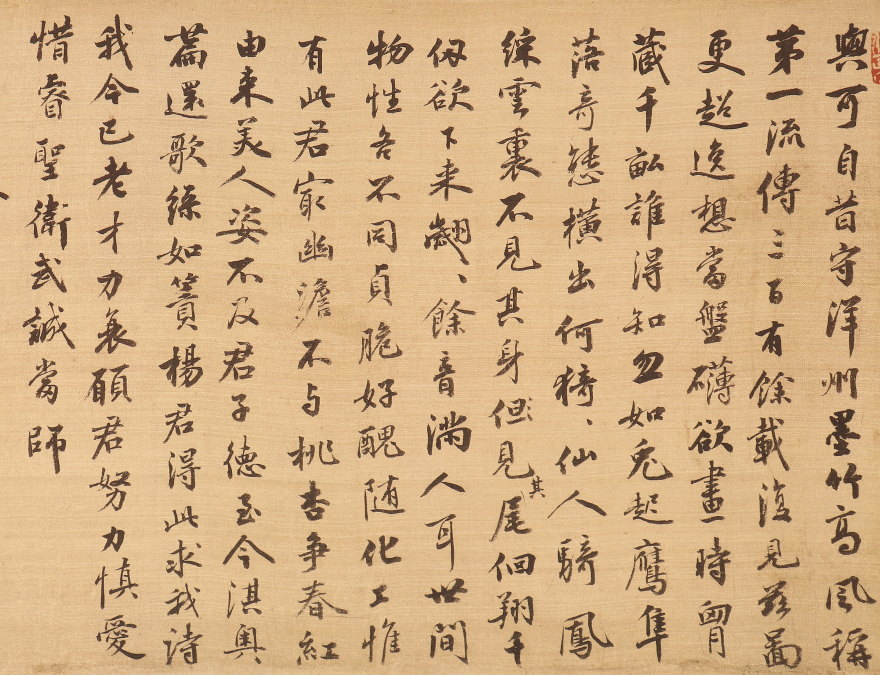 與可自昔守洋州墨竹高風稱
第一流傳三百有餘載復見茲啚
更超逸想當盤礴欲畫時胷
蔵千畝誰得知忽如兎起鷹隼
落奇態橫出何猗〻仙人騎鳳
緑雲裏不見其身但見其尾佪翔千
仭欲下来翽〻餘音满人耳世間
物性各不同貞脆好醜随化工惟
有此君冣幽澹不与桃杏争春紅
由来美人姿不及君子德至今淇奥
篇還歌緑如簀楊君得此求我詩
我今已老才力衰願君努力慎愛
惜睿聖衛武誠當師